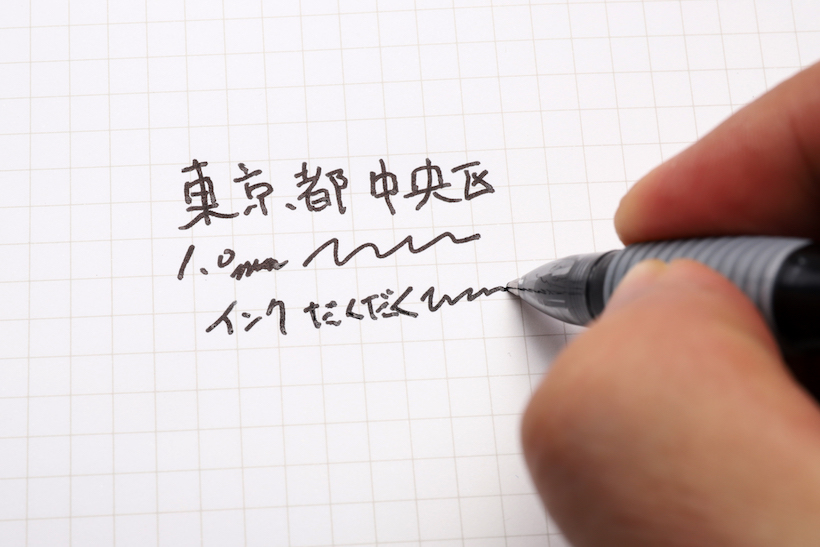 東京都中央区
1.0mm
インクだくだく